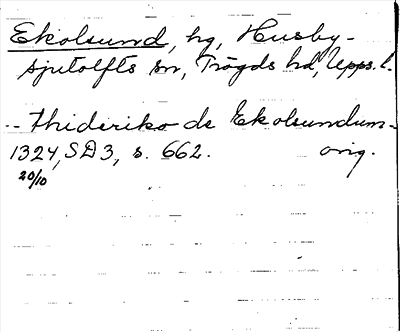 Ekolsund, hg, Husby-
Sjutolfts sn, Trögds hd, Upps. l.
-- thideriko de Ekolsundum -
1324, SD 3, s. 662. orig.
20/10